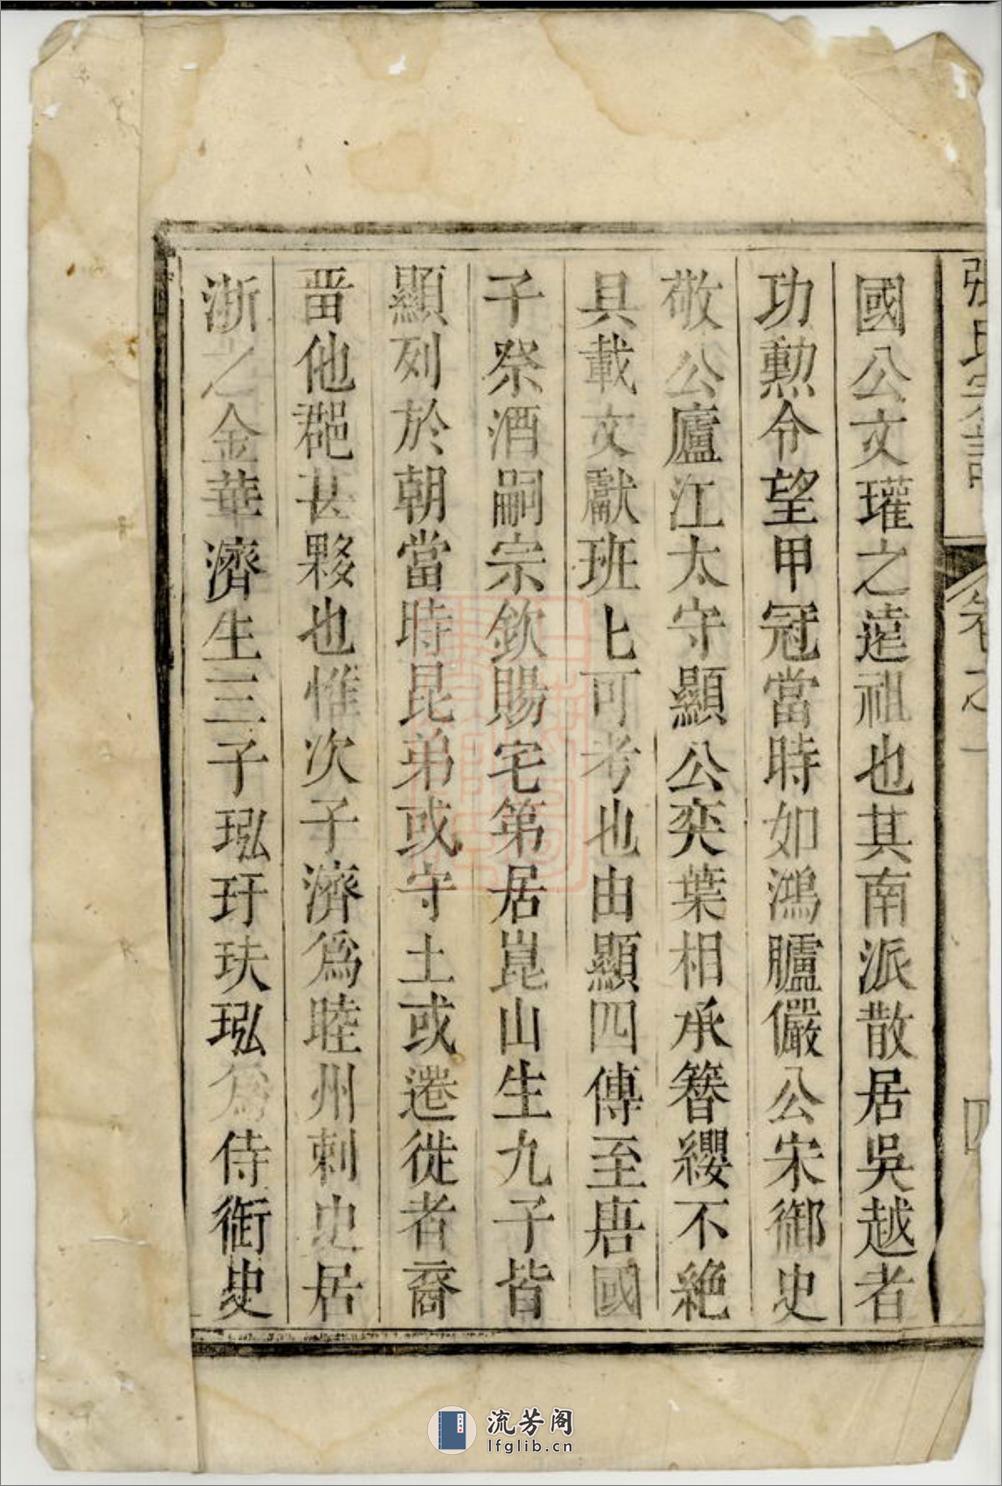 張氏宗譜 卷之一 四
國公文瓘之遠祖也其南派散居吳越者
功勲令望甲冠當時如鴻臚儼公宋御史
敬公廬江太守顯公奕葉相承簪纓不絶
具載文獻班匕可考也由顯四傳至唐國
子祭酒嗣宗欽賜宅第居崑山生九子皆
顯列於朝當時昆弟或守土或遷徙者裔
晋他郡甚夥也惟次子濟爲睦州刺史居
浙之金華濟生三子㺬玗玞㺬爲侍衛史
流芳阁
lfglib.cn